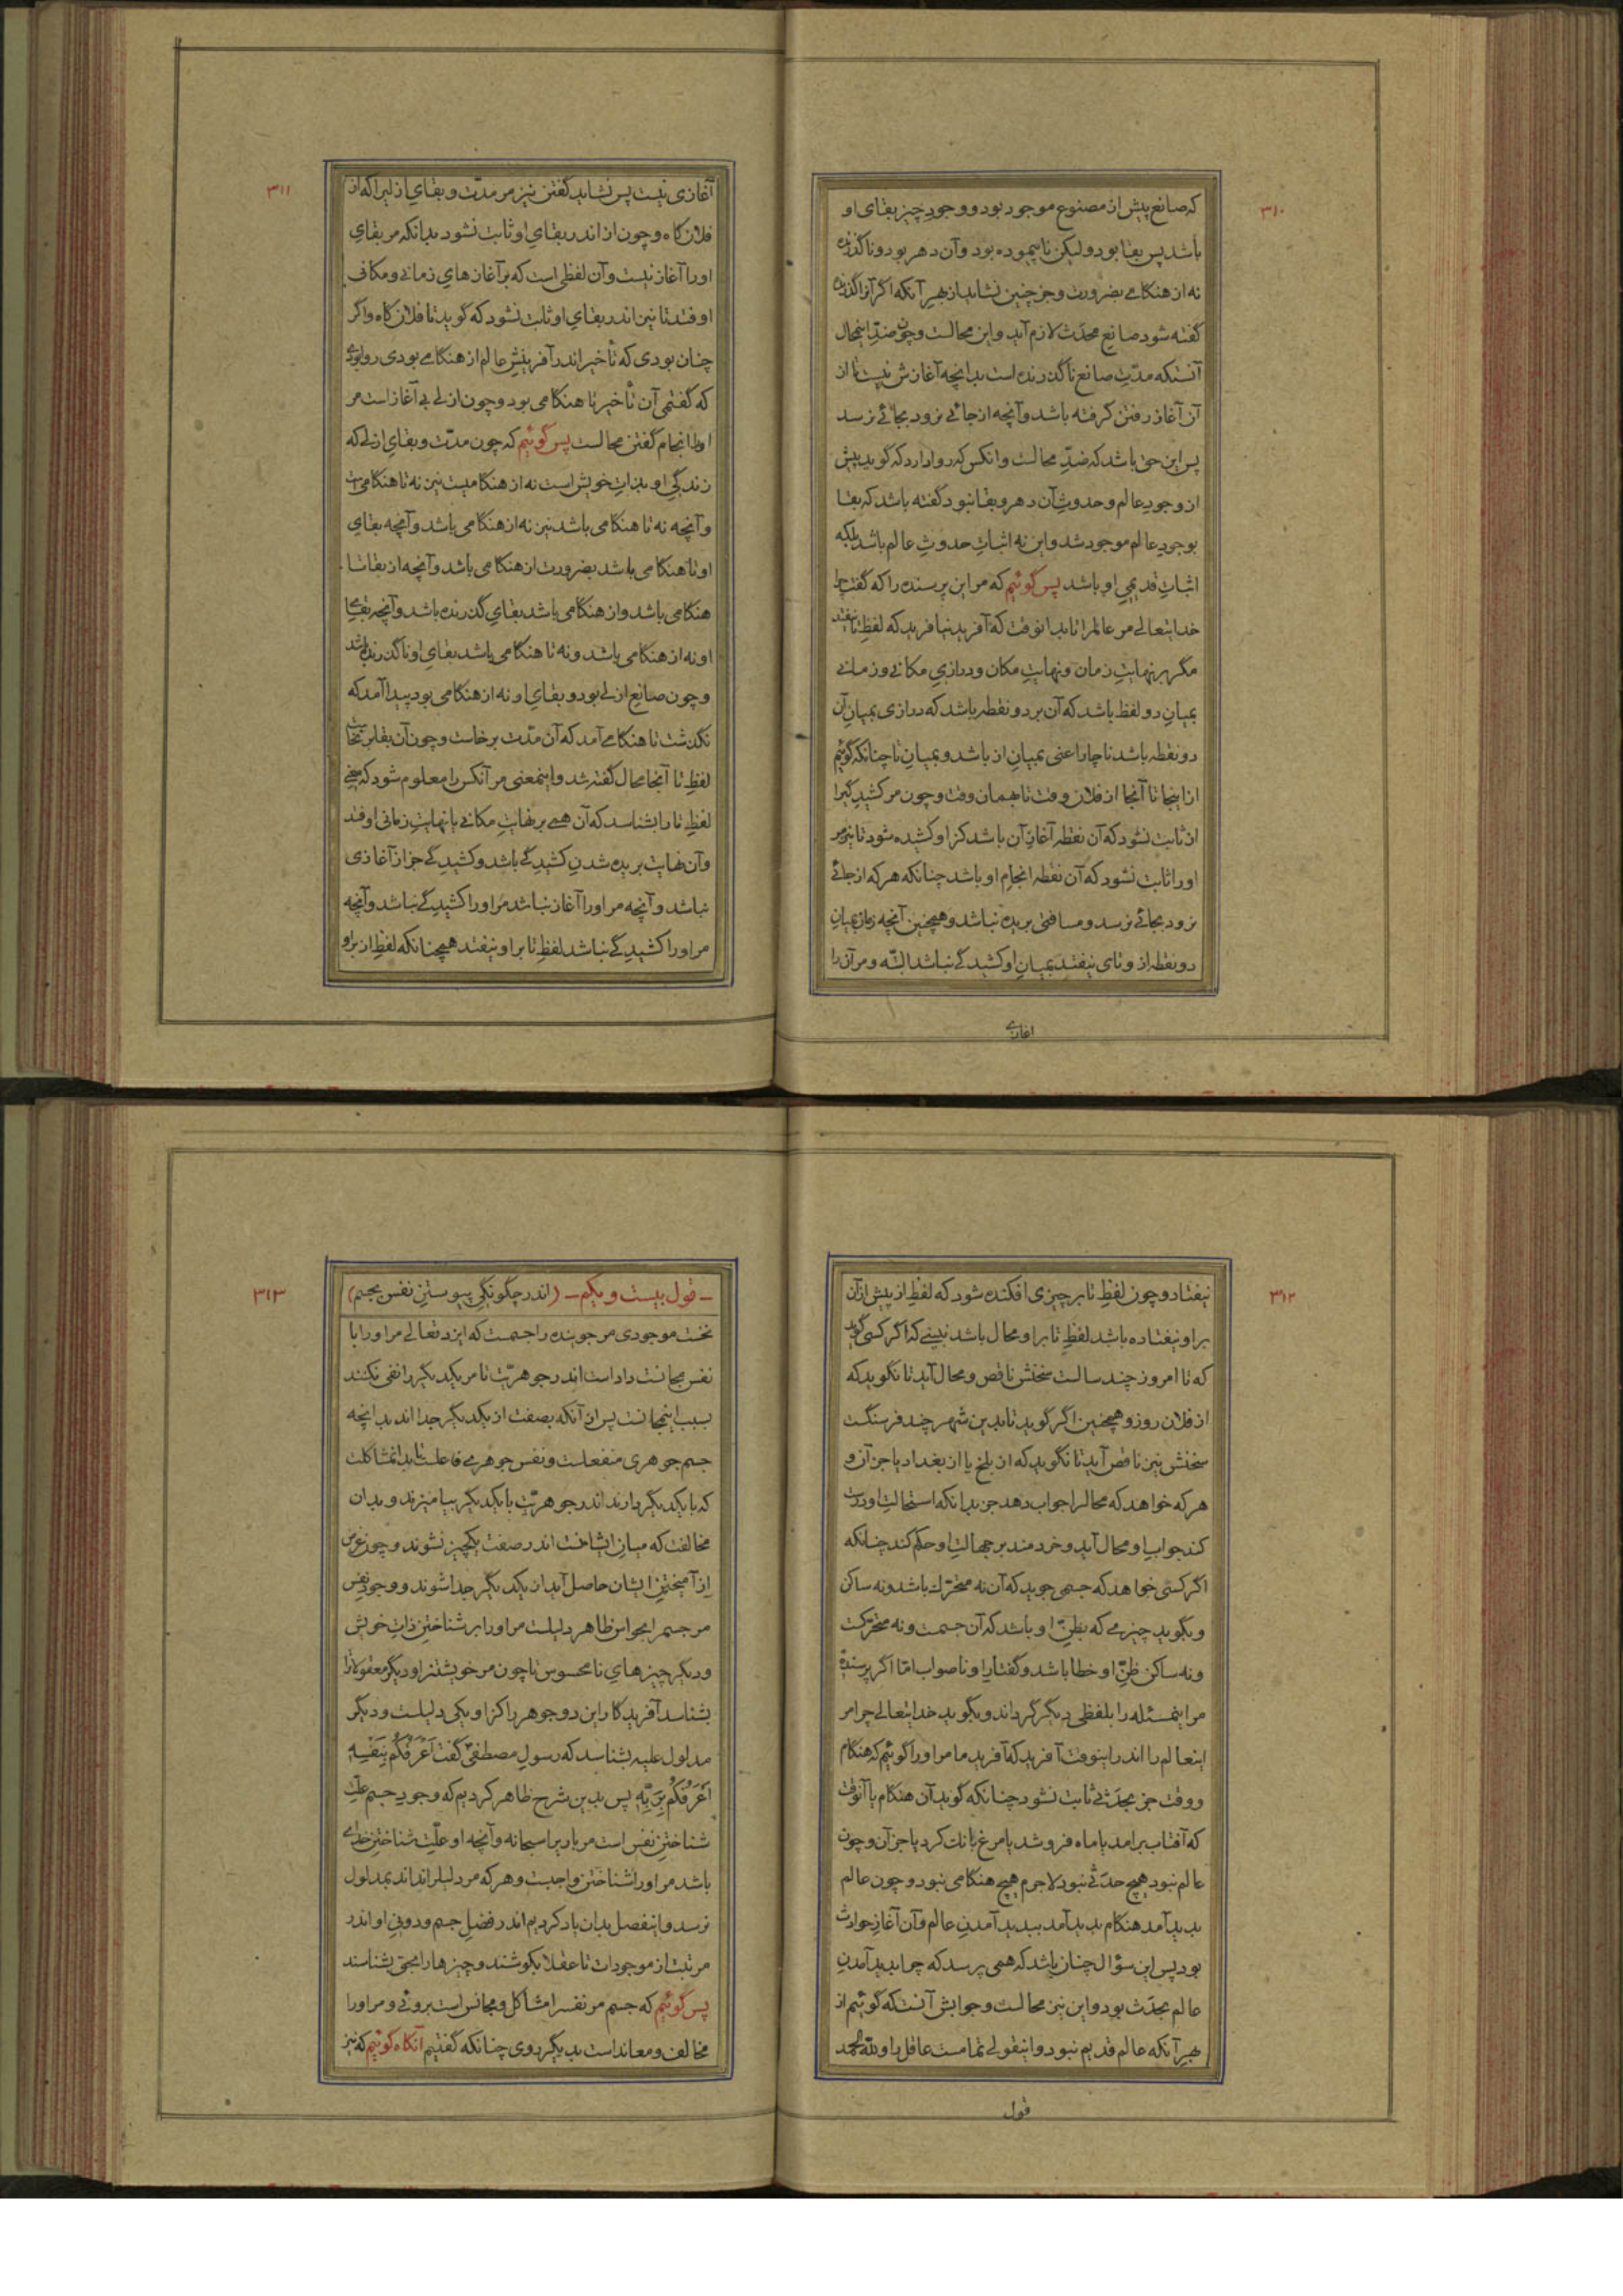 ٣١٠
که صانع پیش از مصنوع موجود بود و وجود چیز بقای او
باشد پس بقا بود ولیکن ناپیموده بود و آن دهر بود و ناگذرنده
نه از هنگامی بضرورت و جز چنین نشاید از بهر آنکه اگر آنرا گذرنده
گفته شود صانع محدَث لازم آید و این محالست و چون ضدّ اینحال
آنستکه مدّتِ صانع ناگذرنده است بدانچه آغازش نیست تا از
آن آغاز رفتن گرفته باشد و آنچه از جائی نرود بجائی نرسد
پس این حق باشد که ضدّ محالست وانکس که روا دارد که گوید پیش
از وجودِ عالم و حدوثِ آن دهر و بقا نبود گفته باشد که بقا
بوجودِ عالم موجود شد و این نه اثباتِ حدوثِ عالم باشد بلکه
اثباتِ قدیمیِ او باشد پس گوئیم که مر این پرسنده را که گفت چرا
خدایتعالی مر عالمرا تا بدانوقت که آفرید نیافرید که لفظِ تا نیفتد
مگر بر نهایتِ زمان و نهایتِ مکان و درازیِ مکانی و زمانی
بمیانِ دو لفظ باشد که آن بر دو نقطه باشد که درازی بمیانِ آن
دو نقطه باشد ناچار اعنی بمیانِ از باشد و بمیانِ تا چنانکه گوئیم
از اینجا تا آنجا از فلان وقت تا بهمان وقت و چون مر کشیدگیرا
از ثابت نشود که آن نقطه آغازِ آن باشد کز او کشیده شود تا نیز مر
اورا ثابت نشود که آن نقطه انجامِ او باشد چنانکه هر که از جائی
نرود بجائی نرسد و مسافتی بریده نباشد و همچنین آنچه زمان بمیانِ
دو نقطه از و تای نیفتد بمیانِ او کشیدگی نباشد البتّه و مر آن را
اغازی
٣١١
آغازی نیست پس نشاید گفتن نیز مر مدّت و بقایِ ازلیرا که از
فلان گاه و چون از اندر بقایِ او ثابت نشود بدانکه مر بقایِ
اورا آغاز نیست و آن لفظی است که بر آغازهایِ زمانی و مکانی
اوفتد تا نیز اندر بقایِ او ثابت نشود که گوید تا فلان گاه و اگر
چنان بودی که تأخیر اندر آفرینشِ عالم از هنگامی بودی روا بودی
که گفتمی آن تأخیر تا هنگامی بود و چون ازلی بی آغاز است مر
اورا انجام گفتن محالست پس گوئیم که چون مدّت و بقایِ ازلی که
زندگیِ او بذاتِ خویش است نه از هنگامیست نیز نه تا هنگامی است
و آنچه نه تا هنگامی باشد نیز نه از هنگامی باشد و آنچه بقایِ
او تا هنگامی باشد بضرورت از هنگامی باشد و آنچه از بقا تا
هنگامی باشد و از هنگامی باشد بقایِ گذرنده باشد و آنچه بقایِ
او نه از هنگامی باشد و نه تا هنگامی باشد بقایِ او ناگذرنده باشد
و چون صانع ازلی بود و بقایِ او نه از هنگامی بود پیدا آمد که
نگذشت تا هنگامی آمد که آن مدّت برخاست و چون آن بقا برنخاست
لفظِ تا آنجا محال گفته شد و اینمعنی مر آنکس را معلوم شود که معنیِ
لفظِ تا را بشناسد که آن همی بر نهایتِ مکانی یا نهایتِ زمانی اوفتد
و آن نهایت بریده شدنِ کشیدگی باشد و کشیدگی جز از آغازی
نباشد و آنچه مر اورا آغاز نباشد مر اورا کشیدگی نباشد و آنچه
مر اورا کشیدگی نباشد لفظِ تا بر او نیفتد همچنانکه لفظِ از بر او
٣١٢
نیفتاد و چون لفظِ تا بر چیزی افکنده شود که لفظِ از پیش از آن
بر او نیفتاده باشد لفظِ تا بر او محال باشد نبینی که اگر کسی گوید
که تا امروز چند سالست سخنش ناقص و محال آید تا نگوید که
از فلان روز و همچنین اگر گوید تا بدین شهر چند فرسنگست
سخنش نیز ناقص آید تا نگوید که از بلخ یا از بغداد یا جز آن و
هر که خواهد که محالرا جواب دهد جز بدانکه استحالتِ او درست
کند جوابِ او محال آید و خردمند بر جهالتِ او حکم کند چنانکه
اگر کسی خواهد که جسمی جوید که آن نه متحرّک باشد و نه ساکن
و بگوید چیزی که بظنِّ او باشد که آن جسمست و نه متحرّکست
و نه ساکن ظنِّ او خطا باشد و گفتارِ او ناصواب امّا اگر پرسنده
مر اینمسئله را بلفظی دیگر گرداند و بگوید خدایتعالی چرا مر
اینعالم را اندر اینوقت آفرید که آفرید ما مر اورا گوئیم که هنگام
و وقت جز بحدَثی ثابت نشود چنانکه گوید آن هنگام یا آنوقت
که آفتاب برامد یا ماه فرو شد یا مرغ بانگ کرد یا جز آن و چون
عالم نبود هیچ حدَثی نبود لاجرم هیچ هنگامی نبود و چون عالم
پدید آمد هنگام پدید آمد بپدید آمدنِ عالم و آن آغازِ حوادث
بود پس این سؤال چنان باشد که همی پرسد که چرا پدید آمدنِ
عالم بحدَث بود و این نیز محالست و جوابش آنستکه گوئیم از
بهرِ آنکه عالم قدیم نبود و اینقولی تمامست عاقل را و لله الحمد
قول
٣١٣
ـ قول بیست و یکم ـ (اندر چگونگیِ پیوستنِ نفس بجسم)
نخست موجودی مر جوینده را جسمست که ایزد تعالی مر اورا با
نفس مجانست داد است اندر جوهریّت تا مر یکدیگر را نفی نکنند
بسببِ اینمجانست پس از آنکه بصفت از یکدیگر جدا اند بدانچه
جسم جوهری منفعلست و نفس جوهری فاعلست تا بدانمشاکلت
که با یکدیگر دارند اندر جوهریّت با یکدیگر بیامیزند و بدان
مخالفت که میانِ ایشانست اندر صفت یکچیز نشوند و چون غرض
از آمیختنِ ایشان حاصل آید از یکدیگر جدا شوند و وجودِ نفس
مر جسمرا بحواسِ ظاهر دلیلست مر اورا بر شناختنِ ذاتِ خویش
و دیگر چیزهایِ نامحسوس تا چون مر خویشتنرا و دیگر معقولاترا
بشناسد آفریدگارِ این دو جوهر را کز او یکی دلیلست و دیگر
مدلول علیه بشناسد که رسولِ مصطفی گفت اَعْرَفُکُم بِنَفْسِهِ
اَعْرَفُکُم بِرَبِّهِ پس بدین شرح ظاهر کردیم که وجودِ جسم علّتِ
شناختنِ نفس است مر باریرا سبحانه و آنچه او علّتِ شناختنِ خدای
باشد مر اورا شناختن واجبست و هر که مر دلیلرا نداند بمدلول
نرسد و اینفصل بدان یاد کردیم اندر فضلِ جسم و دونیِ او اندر
مرتبت از موجودات تا عقلا بکوشند و چیزها را بحق بشناسند
پس گوئیم که جسم مر نفسرا مشاکل و مجانس است بروئی و مر اورا
مخالف و معاند است بدیگر روی چنانکه گفتیم آنگاه گوئیم که نیز